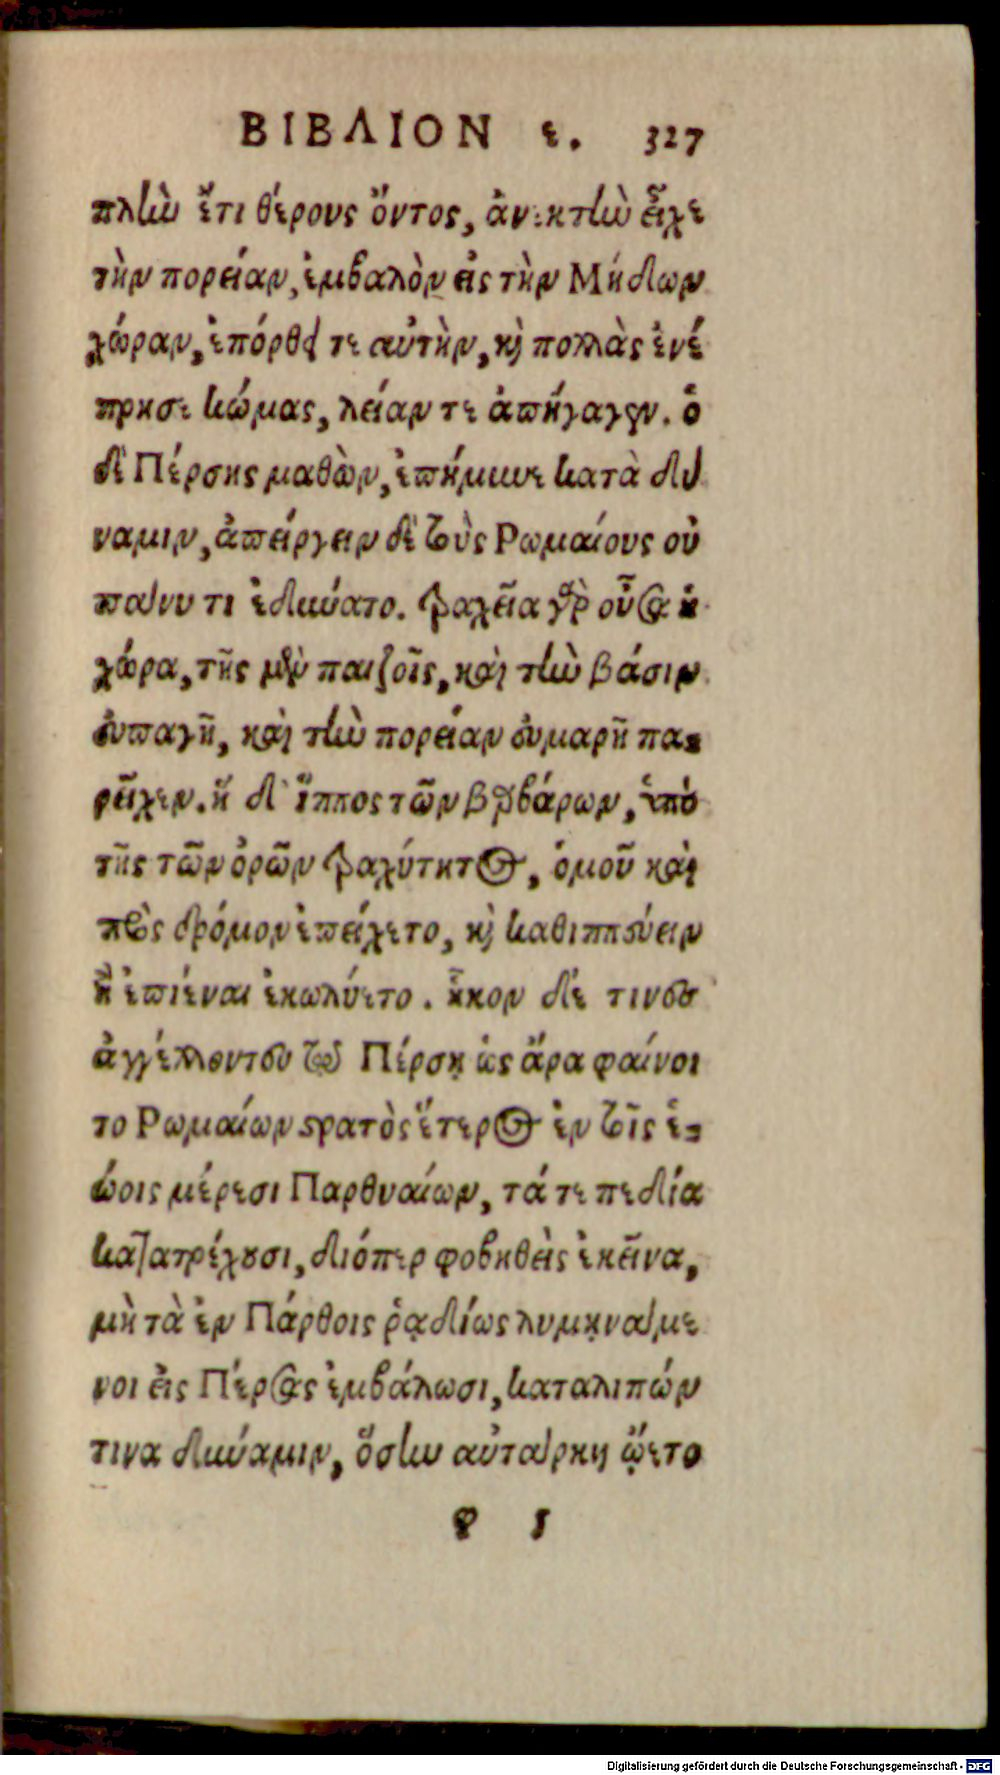 ΒΙΒΛΙΟΝ ε. 327
πλὴν ἔτι θέρους ὄντος, ἀνεκτὴν εἶχε
τὴν πορείαν, ἐμβαλὸν εἰς τὴν Μήδων
χώραν, ἐπόρθει τε αὐτὴν, καὶ πολλὰς ἐνέ
πρησε κώμας, λείαν τε ἀπήγαγεν. ὁ
δὲ Πέρσης μαθὼν, ἐπήμυνε κατὰ δύ
ναμιν, ἀπείργειν δὲ τοὺς Ρωμαίους οὐ
πάνυ τι ἐδύνατο. τραχεῖα γὰρ οὖσα ἡ
χώρα, τῆς μὲν πεζοῖς, καὶ τὴν βάσιν
εὐπαγῆ, καὶ τὴν πορείαν εὐμαρῆ πα-
ρεῖχεν. ἡ δ' ἵππος τῶν βαρβάρων, ὑπὸ
τῆς τῶν ὀρῶν τραχύτητος, ὁμοῦ καὶ
πρὸς δρόμον ἐπείχετο, καὶ καθιππεύειν
ἢ ἐπιέναι ἐκωλύετο. ἧκον δέ τινες
ἀγγέλλοντες τῷ Πέρσῃ ὡς ἄρα φαίνοι
το Ρωμαίων στρατὸς ἕτερος ἐν τοῖς ἑ-
ώοις μέρεσι Παρθυαίων, τά τε πεδία
κατατρέχουσι, διόπερ φοβηθεὶς ἐκεῖνα,
μὴ τὰ ἐν Πάρθοις ῥᾳδίως λυμῃνάμε
νοι εἰς Πέρσας ἐμβάλωσι, καταλιπών
τινα δύναμιν, ὅσην αὐτάρκη ᾤετο
5
Digitalisierung gefördert durch die Deutsche Forschungsgemeinschaft - DFG